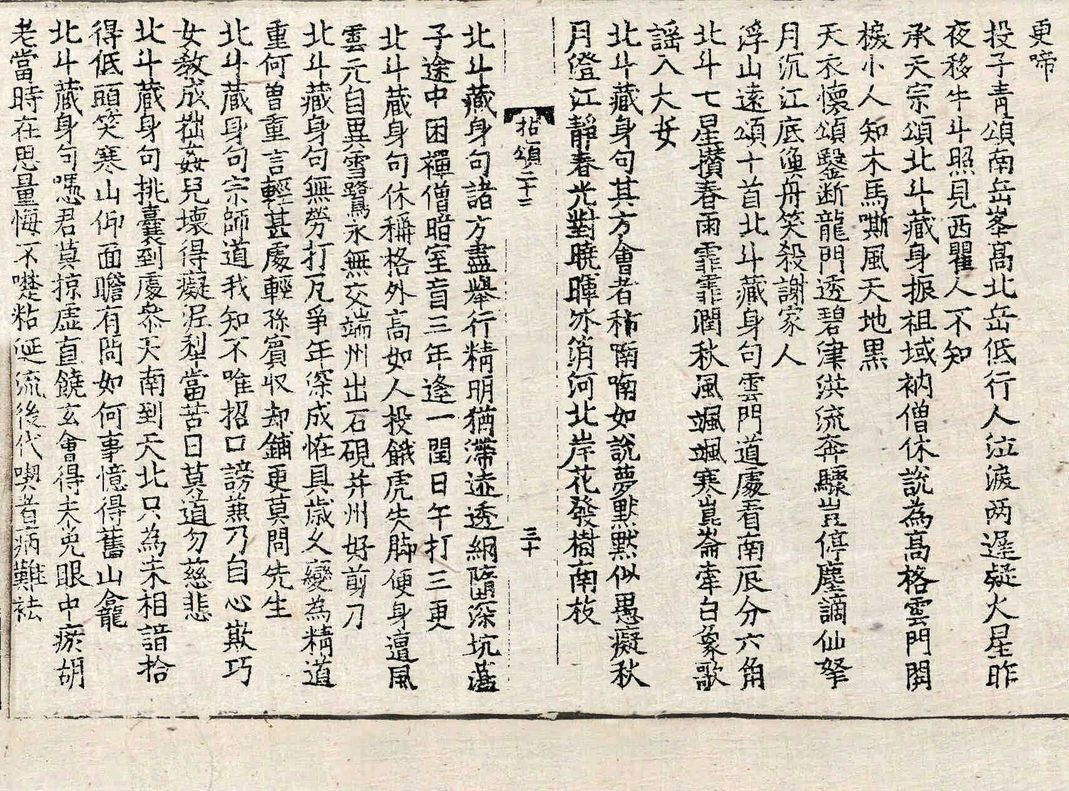 更啼
投子青頌南岳峯高北岳低行人泣淚两遅疑火星昨
夜移牛斗照見西瞿人不知
承天宗頌北斗藏身振祖域衲僧休說為高格雲門関
棙小人知木馬嘶風天地黒
天衣懷頌鑿断龍門透碧津洪流奔驟豈停塵謫仙拏
月沉江底漁舟笑殺謝家人
浮山遠頌十首北斗藏身句雲門道處看南辰分六角
北斗七星攅春雨霏霏潤秋風颯颯寒崑崙牽白象歌
謡入大安
北斗藏身句其方會者稀喃喃如說夢默默似愚癡秋
月澄江靜春光對曉暉冰消河北岸花發樹南枝
拈頌二十二 三十
北斗藏身句諸方盡舉行精明猶滯迹透網墮深坑蕩
子途中困禪僧暗室盲三年逢一閏日午打三更
北斗藏身句休稱格外高如人投餓虎失脚便身遭風
雲元自異雪鷺永無交端州出石硯并州好剪刀
北斗藏身句無勞打瓦爭年深成恠具歳久變為精道
重何曽重言輕甚處輕孫賔収却鋪更莫問先生
北斗藏身句宗師道我知不唯招口謗兼乃自心欺巧
女教成拙姦兒壊得癡泥犁當苦日莫道勿慈悲
北斗藏身句挑囊到處叅天南到天北只為未相諳拾
得低頭笑寒山仰面瞻有問如何事憶得舊山龕
北斗藏身句憑君莫掠虛直饒玄會得未免眼中瘀胡
老當時在思量悔不嚐粘涎流後代喫者病難袪